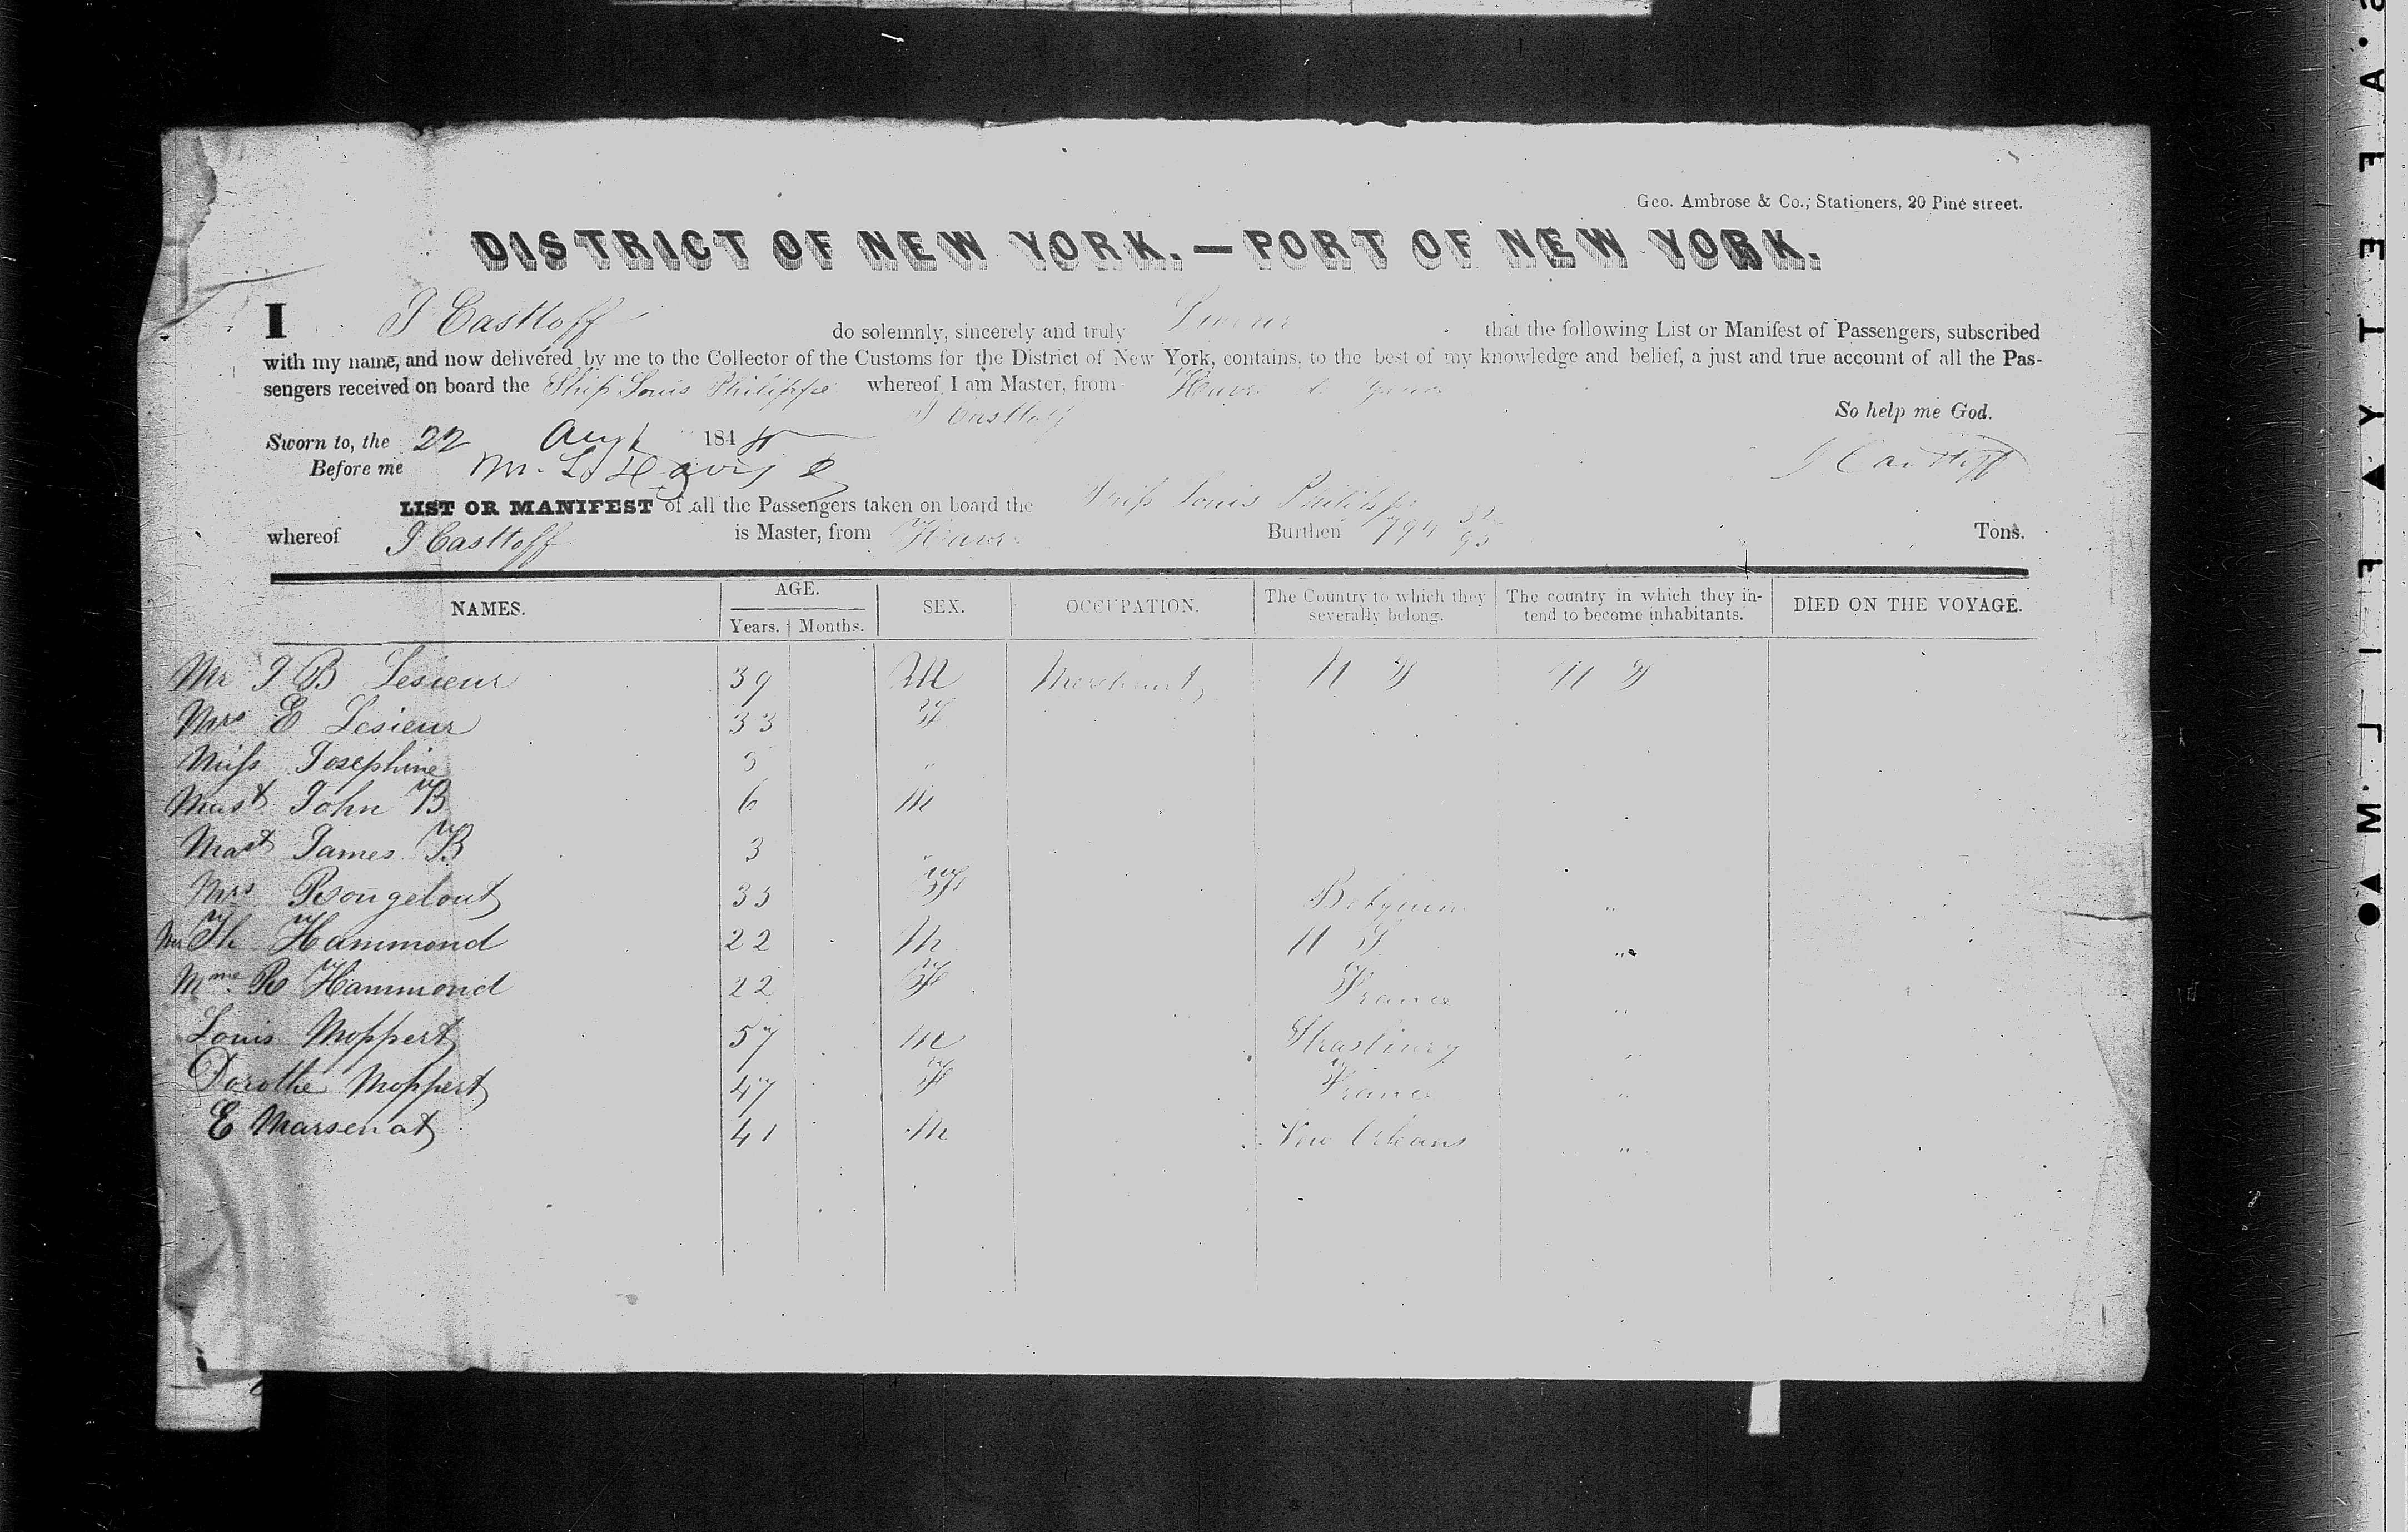 Geo. Ambrose & Co., Stationers, 20 Pine street.
DISTRICT OF NEW YORK.—PORT OF NEW YORK.
I J Casttoff do solemnly, sincerely and truly Swear that the following List or Manifest of Passengers, subscribed
with my name, and now delivered by me to the Collector of the Customs for the District of New York, contains, to the best of my knowledge and belief, a just and true account of all the Pas-
sengers received on board the Ship Louis Philippe whereof I am Master, from Havre
J Casttoff
So help me God.
Sworn to, the 22 Augt 184
Before me M. L. Davis J Casttoff
LIST OR MANIFEST of all the Passengers taken on board the Ship Louis Philippe
whereof J Casttoff is Master, from Havre Burthen 794 Tons.
NAMES. AGE. Years. Months. SEX. OCCUPATION. The Country to which they severally belong. The country in which they in-tend to become inhabitants. DIED ON THE VOYAGE.
Mr J B Lesieur 39 M Merchant U S U S
Mrs E Lesieur 33 F
Miss Josephine 5 "
Mast John B 6 M
Mast James B 3 "
Mrs Rougelout 33 F Belgium "
Mr Th Hammond 22 M U S "
Mme R Hammond 22 F France "
Louis Moppert 57 M Strasbourg "
Dorothe Moppert 47 F France "
E Marsenat 41 M New Orleans "
M.LIFETYAYTEEFA.S